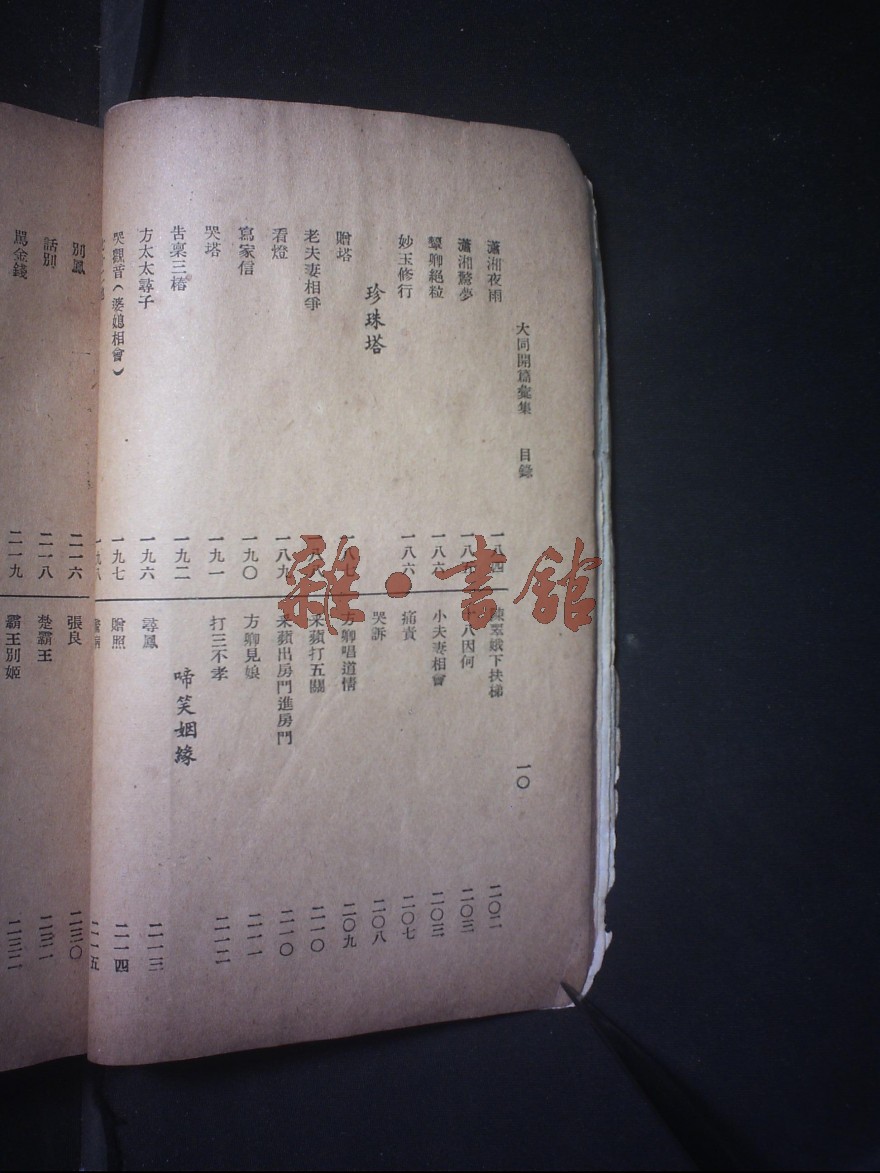 大同開篇彙集 目錄 一〇
瀟湘夜雨 一八四
瀟湘驚夢
顰卿絕粒 一八六
妙玉修行 一八六
珍珠塔
贈塔 一八七
老夫妻相爭
看燈 一八九
寫家信 一九〇
哭塔 一九一
告稟三樁 一九二
方太太尋子 一九六
哭觀音（婆媳相會） 一九七
一九八
下扶梯 二〇二
十八因何 二〇三
小夫妻相會 二〇三
痛責 二〇七
哭訴 二〇八
方卿唱道情 二〇九
采蘋打五關 二一〇
采蘋出房門進房門 二一〇
方卿見娘 二一一
打三不孝 二一二
啼笑姻緣
尋鳳 二一三
贈照 二一四
二一五
別鳳 二一六
話別 二一八
罵金錢 二一九
張良 二三〇
楚霸王 二三一
霸王別姬 二三二
雜·書館